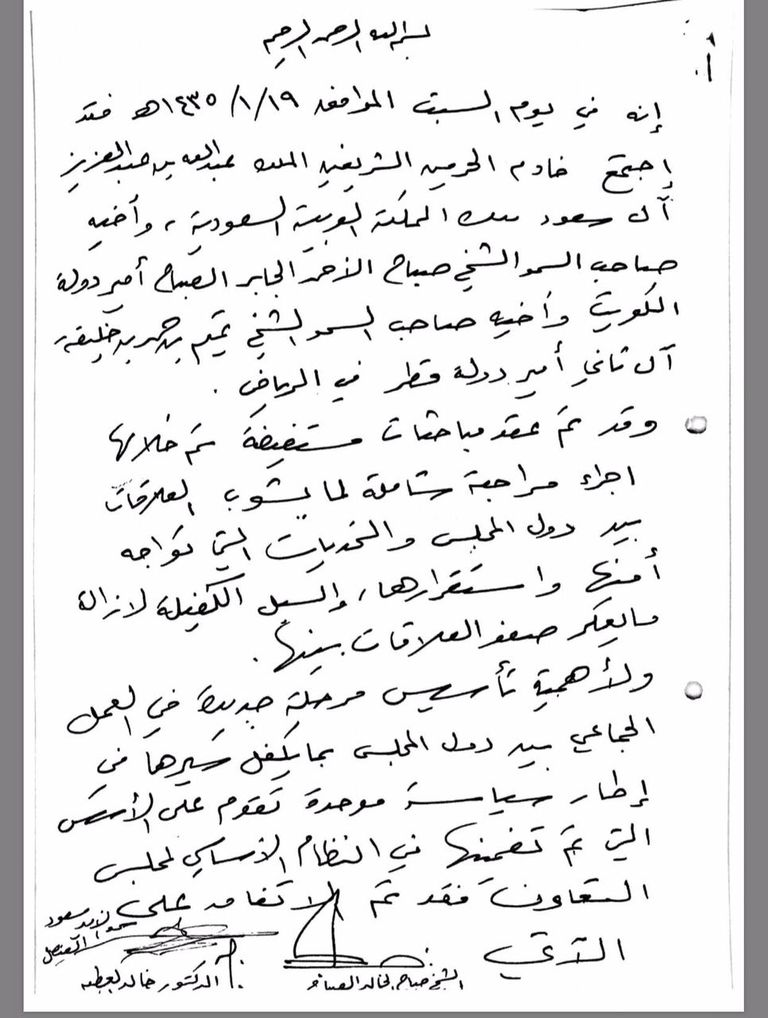 بسم الله الرحمن الرحيم
إنه في يوم السبت الموافق ١٤٣٥/١/١٩هـ فقد
إجتمع خادم الحرمين الشريفين الملك عبدالله بن عبدالعزيز
آل سعود ملك المملكة العربية السعودية ، وأخيه
صاحب السمو الشيخ صباح الأحمد الجابر الصباح أمير دولة
الكويت وأخيه صاحب السمو الشيخ تميم بن حمد بن خليفة
آل ثاني أمير دولة قطر في الرياض .
وقد تم عقد مباحثات مستفيضة تم خلالها
اجراء مراجعة شاملة لما يشوب العلاقات
بين دول المجلس والتحديات التي تواجه
أمنها واستقرارها، والسبل الكفيلة لازالة
مايعكر صفو العلاقات بينها .
ولأهمية تأسيس مرحلة جديدة في العمل
الجماعي بين دول المجلس بما يكفل سيرها في
إطار سياسة موحدة تقوم على الأسس
التي تم تضمينها في النظام الأساسي لمجلس
التعاون فقد تم الاتفاق على
الآتي
سعود الفيصل
الشيخ صباح الخالد الصباح
الدكتور خالد العطية